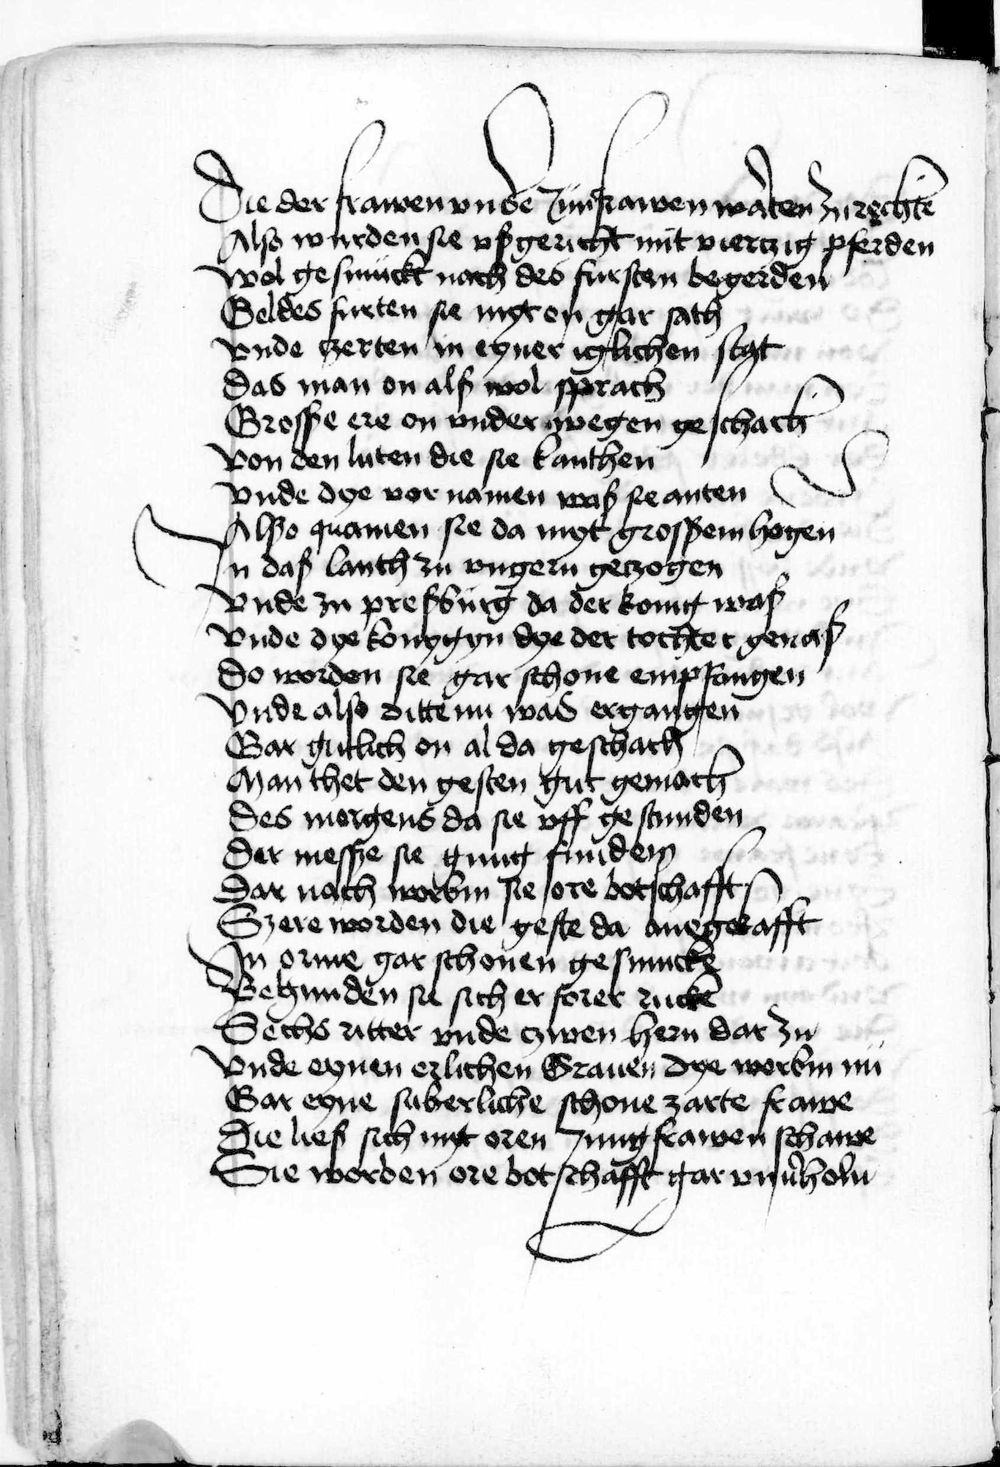 Die der frawen vnde Junfrawen waten zu rechte
Also wurden sie vßgericht mit viertzig pferden
Wol gesmuckt noch des fursten begerden
Geldes furten sie myt on gar sath
Vnde zcerten in eyner iglichen stat
Das man on alß wol sprach
Grosße ere on vnder wegen geschach
Von den luten die sie kanthen
Vnde dye vor namen waß sie anten
Alßo quamen sie da myt großem hogen
In daß lanth zu vngern getzogen
Vnde zu preßburg da der konig waß
Vnde dye konygyn dye der tochter genaß
Do worden sie gar schone empfangen
Vnde also ditte nu was ergangen
Gar gutlich on al da geschach
Man thet den gesten gut gemach
Des morgens da sie vff gestunden
Der messe sie gnug funden
Dar noch worbin sie ore botschafft
Szere worden die geste da anegegafft
In orme gar schonen gesmucke
Begunden sie sich er forer rucke
Sechs ritter vnde czwen hern dar zu
Vnde eynen erlichen Grauen dye worbin nu
Gar eyne suberliche schone zarte frawe
Die ließ sich myt oren Jungfrawen schawe
Sie worden ore botschafft gar vnuerholn